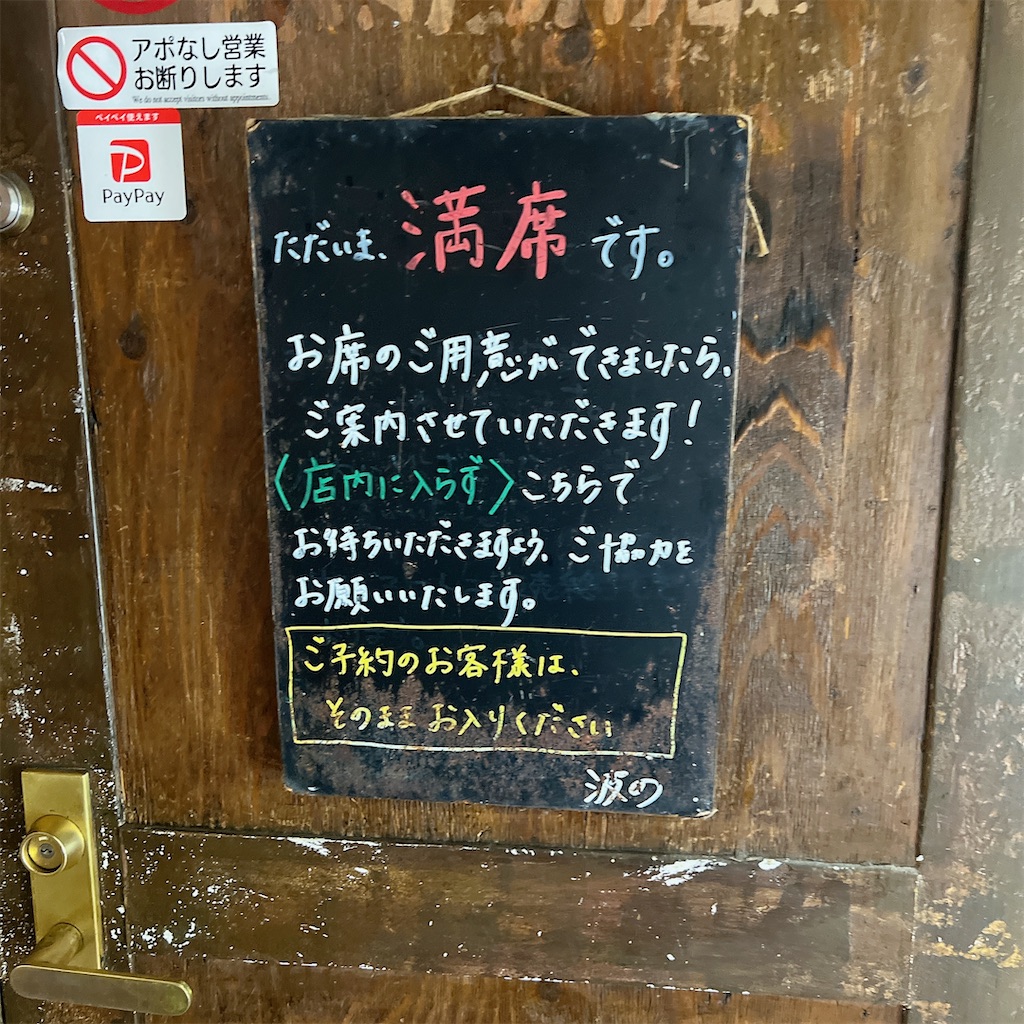 アポなし営業
お断りします
We do not accept visitors without appointments.
ペイペイ使えます
PayPay
ただいま、満席です。
お席のご用意ができましたら、
ご案内させていただきます!
〈店内に入らず〉こちらで
お待ちいただきますよう、ご協力を
お願いいたします。
ご予約のお客様は、
そのままお入りください
波の